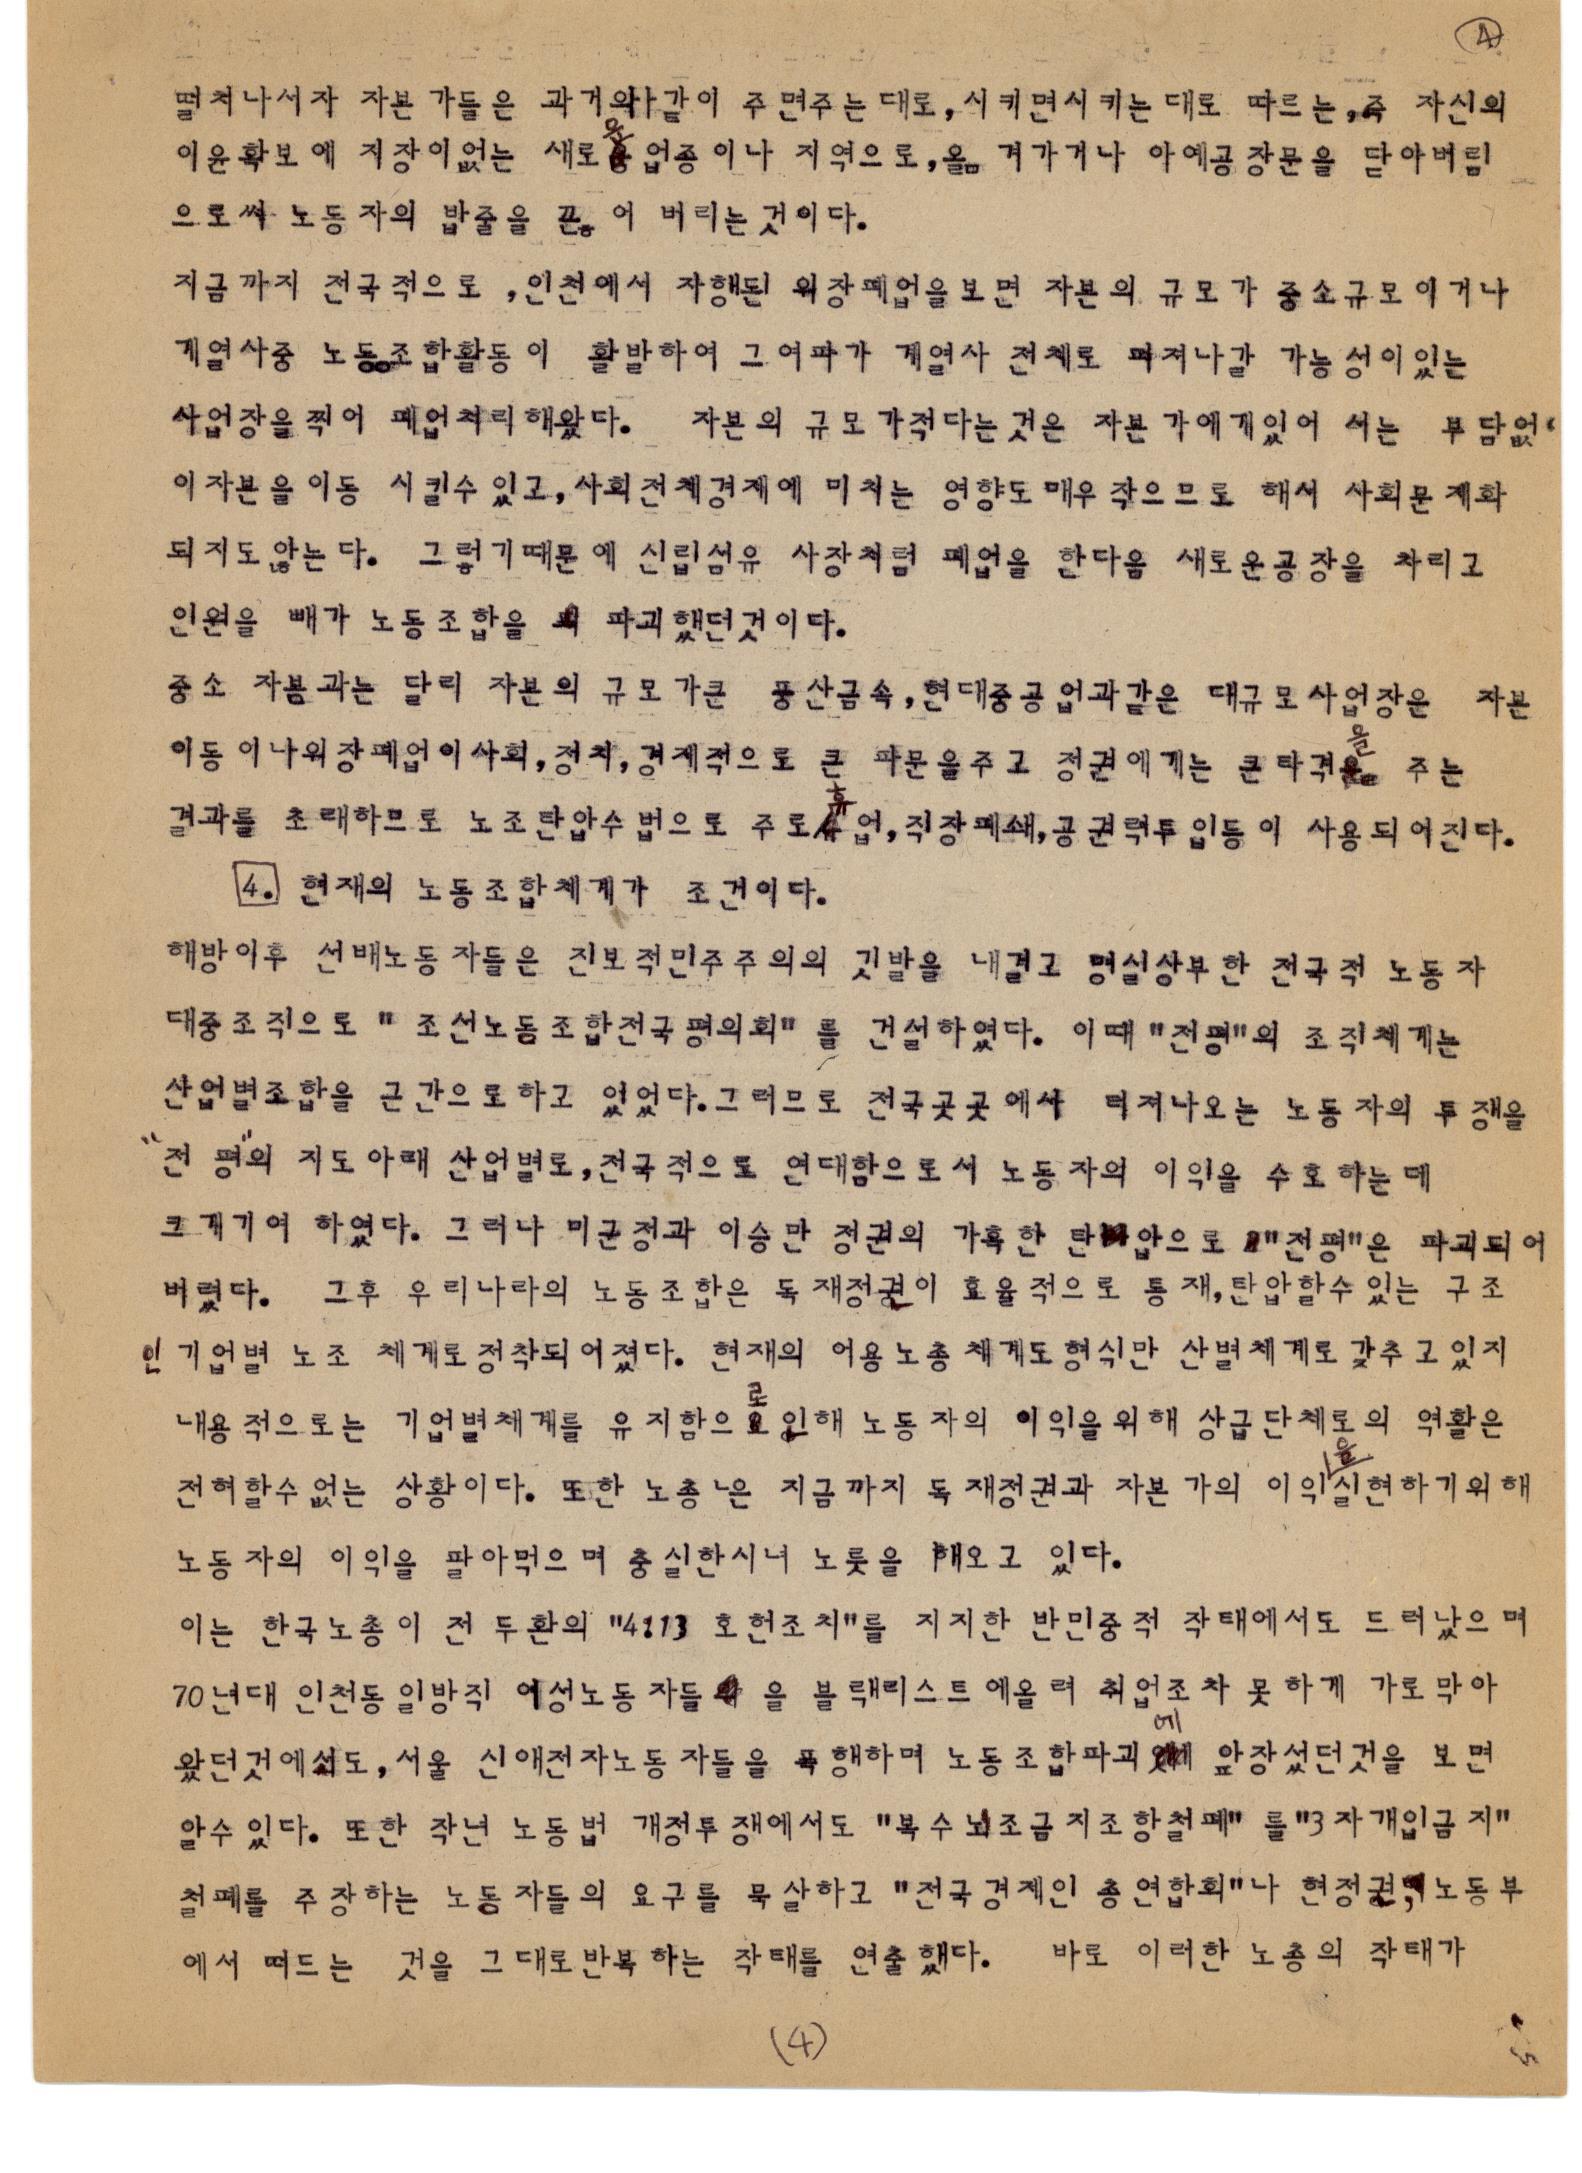 4
떨쳐나서자 자본가들은 과거와 같이 주면주는대로,시키면시키는대로 따르는,즉 자신의
이윤확보에 지장이없는 새로운업종이나 지역으로,옮겨가거나 아예공장문을 닫아버림
으로써 노동자의 밥줄을 끈어 버리는것이다.
지금까지 전국적으로 ,인천에서 자행된 위장폐업을보면 자본의 규모가 중소규모이거나
계열사중 노동조합활동이 활발하여 그여파가 계열사 전체로 퍼져나갈 가능성이있는
사업장을찍어 폐업처리해왔다. 자본의 규모가적다는것은 자본가에게있어 서는 부담없
이자본을이동 시킬수있고,사회전체경제에 미치는 영향도매우작으므로 해서 사회문제화
되지도않는다. 그렇기때문에 신립섬유 사장처럼 폐업을 한다음 새로운공장을 차리고
인원을 빼가 노동조합을 파괴했던것이다.
중소 자봄과는 달리 자본의 규모가큰 풍산금속,현대중공업과같은 대규모사업장은 자본
이동이나위장폐업이사회,정치,경제적으로 큰 파문을주고 정권에게는 큰타격을 주는
결과를 초래하므로 노조탄압수법으로 주로휴업,직장폐쇄,공권력투입등이 사용되어진다.
4. 현재의 노동조합체계가 조건이다.
해방이후 선배노동자들은 진보적민주주의의 깃발을 내걸고 명실상부한 전국적 노동자
대중조직으로 " 조선노돔조합전국평의회" 를 건설하였다. 이때"전평"의 조직체계는
산업별조합을 근간으로하고 있었다.그러므로 전국곳곳에서 터져나오는 노동자의 투쟁을
"전 평"의 지도아래 산업별로,전국적으로 연대함으로서 노동자의 이익을 수호하는데
크게기여 하였다. 그러나 미군정과 이승만 정권의 가혹한 탄압으로 "전평"은 파괴되어
버렸다. 그후 우리나라의 노동조합은 독재정권이 효율적으로 통제,탄압할수있는 구조
인 기업별 노조 체계로정착되어졌다. 현재의 어용노총체계도형식만 산별체계로갖추고있지
내용적으로는 기업별체계를 유지함으로 인해 노동자의 이익을위해 상급단체로의 역활은
전혀할수없는 상황이다. 또한 노총은 지금까지 독재정권과 자본가의 이익을실현하기위해
노동자의 이익을 팔아먹으며 충실한시녀 노릇을 해오고 있다.
이는 한국노총이 전두환의 "4:13 호헌조치"를 지지한 반민중적 작태에서도 드러났으며
70년대 인천동일방직 여성노동자들 을 블랙리스트에올려 취업조차못하게 가로막아
왔던것에서도,서울 신애전자노동자들을 폭행하며 노동조합파괴에 앞장섰던것을 보면
알수있다. 또한 작년 노동법 개정투쟁에서도 "복수노조금지조항철폐" 를"3자개입금지"
철폐를 주장하는 노동자들의 요구를 묵살하고 "전국경제인 총연합회"나 현정권,노동부
에서 떠드는 것을 그대로반복하는 작태를 연출했다. 바로 이러한노총의 작태가
(4)